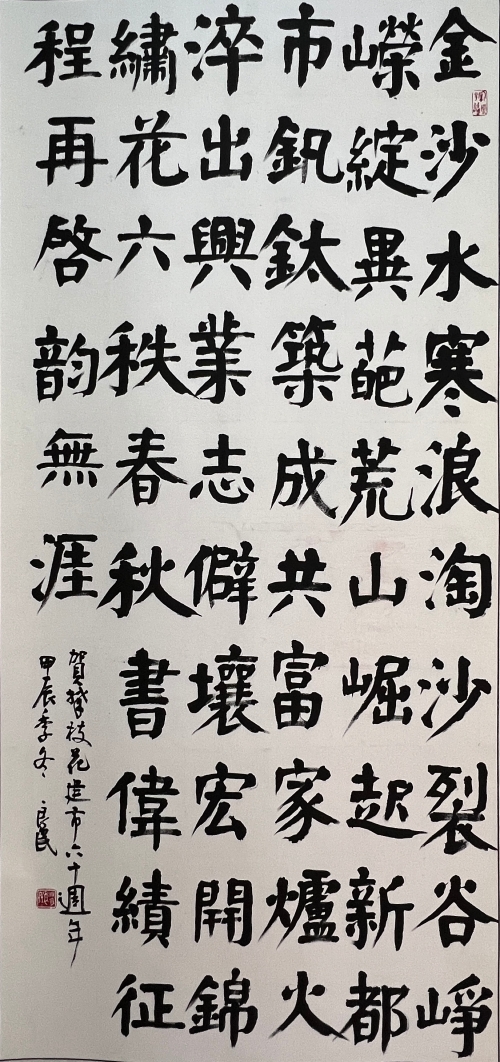 金沙水寒浪淘沙裂谷崢
嶸綻異葩荒山崛起新都
市釩鈦築成共富家爐火
淬出興業志僻壤宏開錦
繡花六秩春秋書偉績征
程再啓韵無涯
賀攀枝花建市六十週年
甲辰季冬 良民